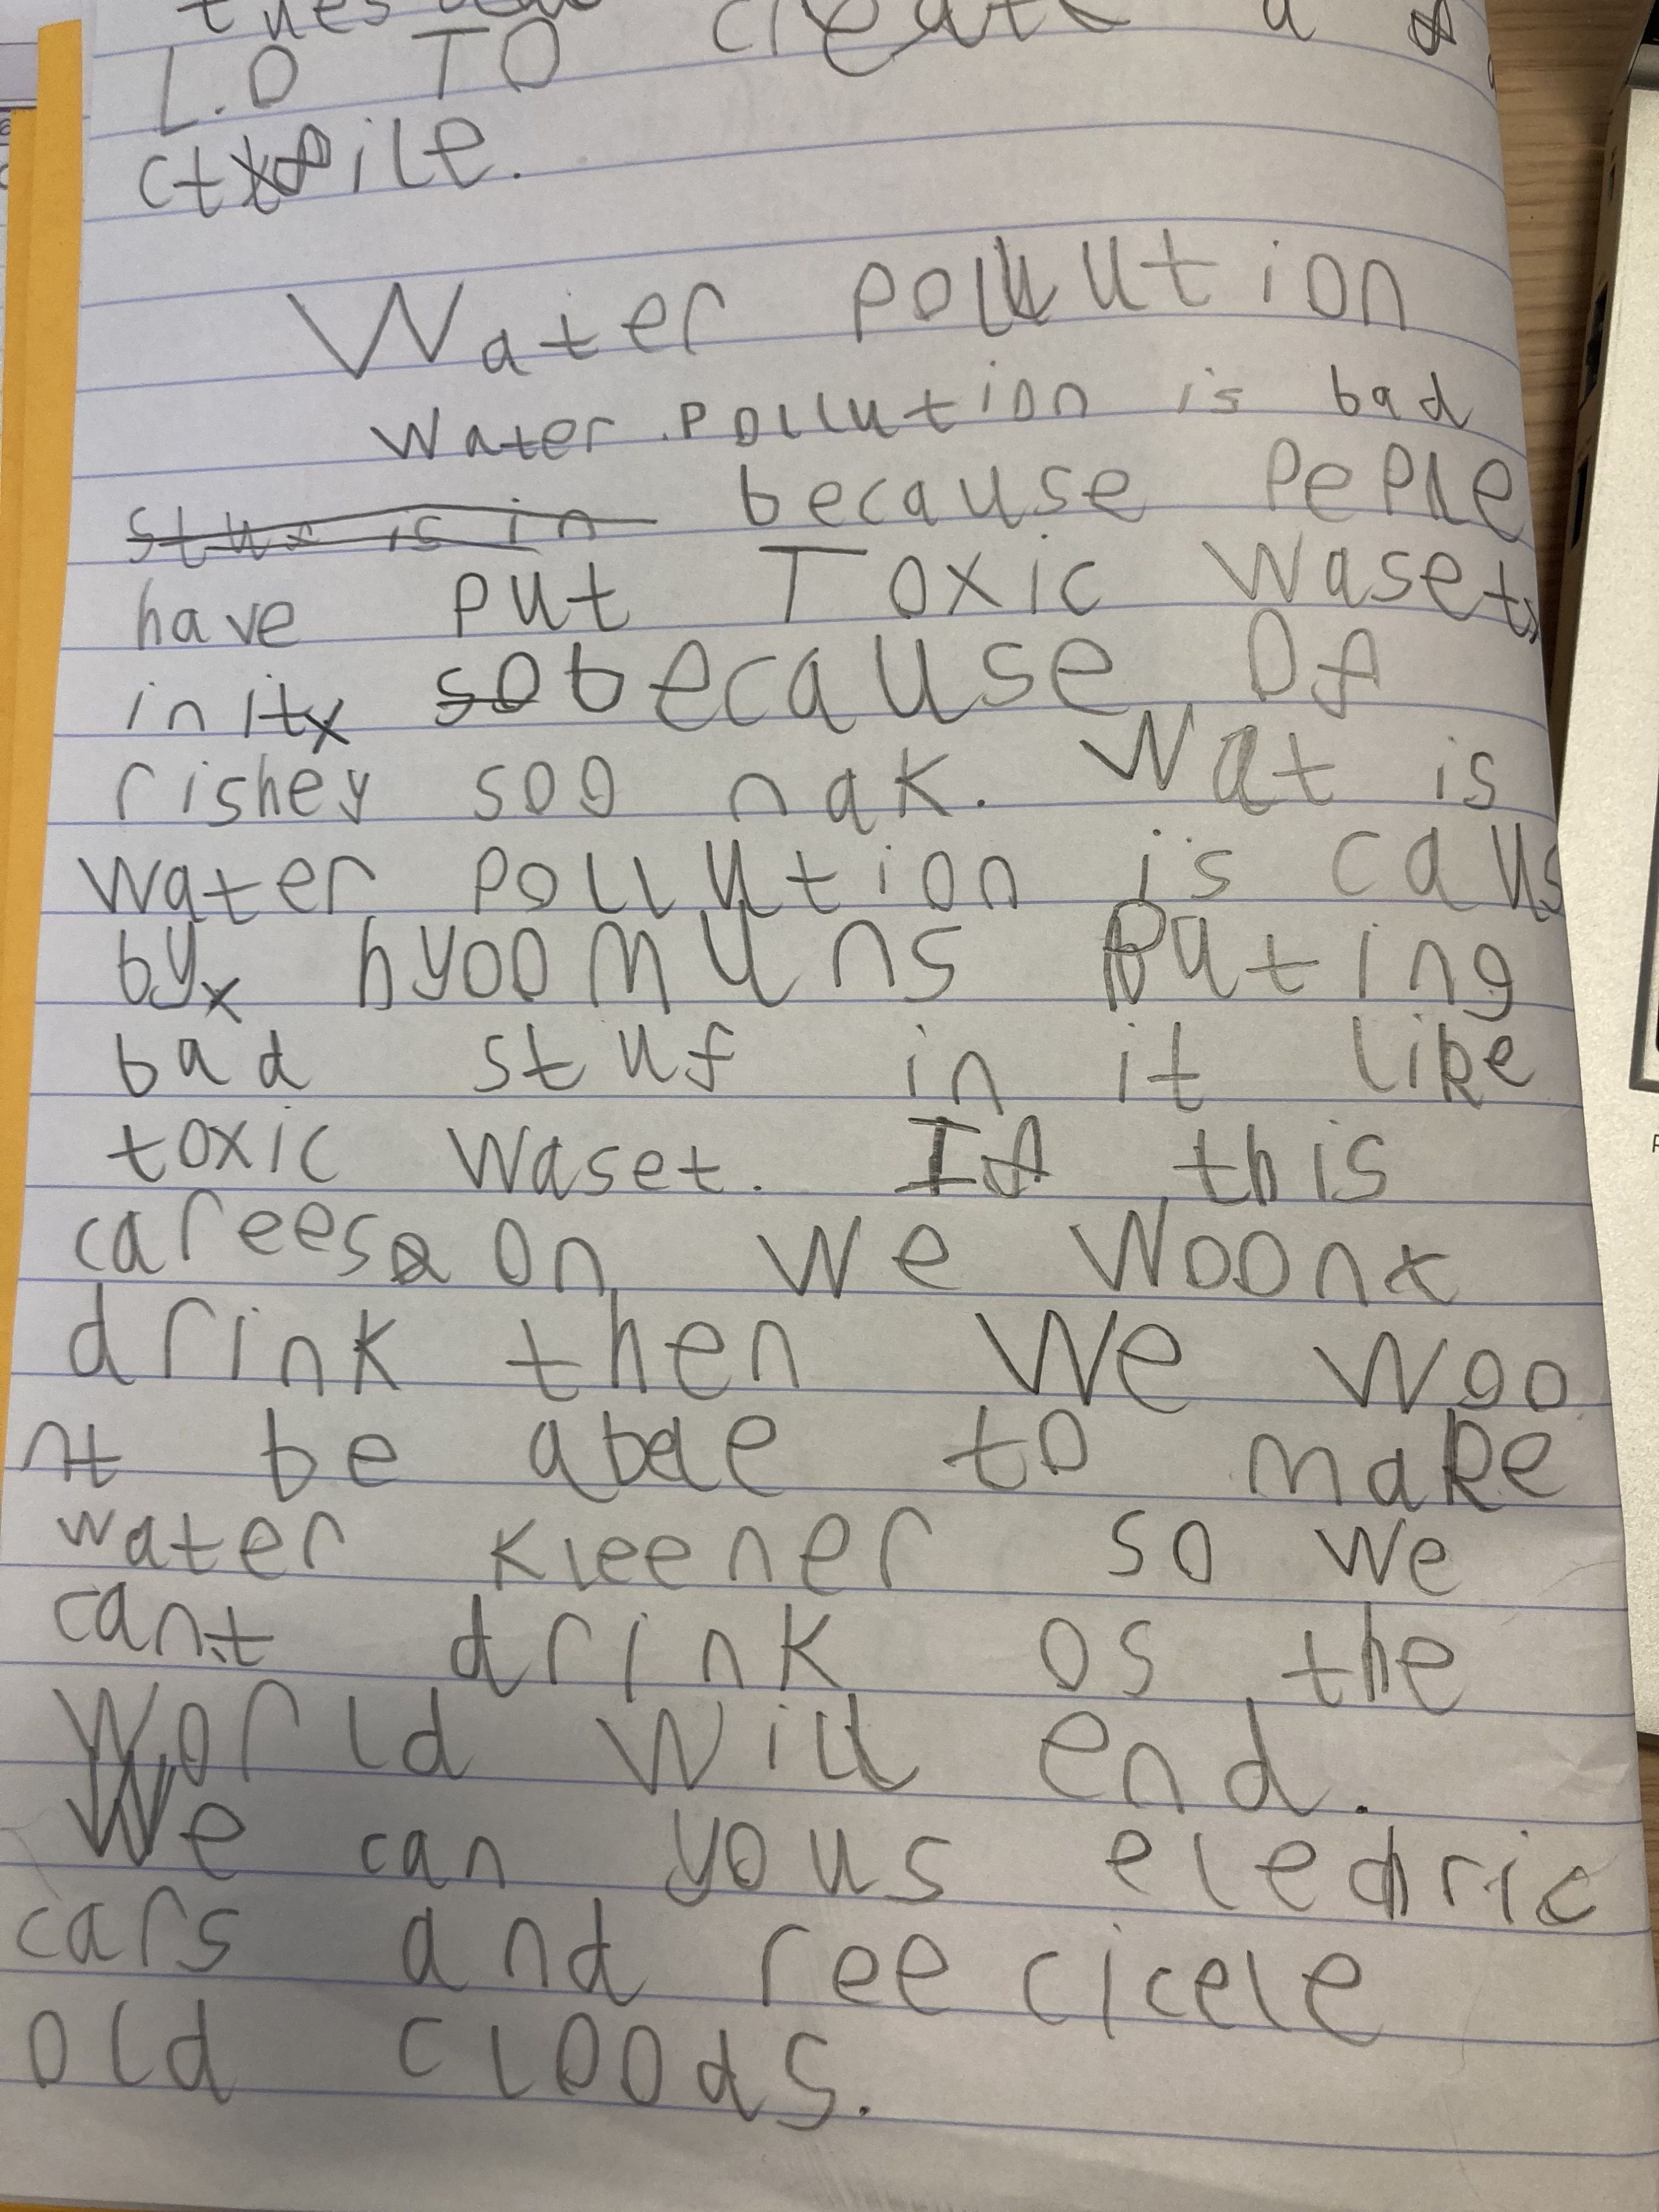 L.O TO create a
Water pollution
Water pollution is bad
stux is in because PePle
have put Toxic waset
in it so because of
rishey soo nak. Wat is
water pollution is caus
by hyoomuns Puting
bad stuf in it like
toxic waset. If this
carees on we woont
drink then we woo
nt be abae to make
water kleener so we
cant drink os the
World will end.
We can yous eledric
cars and ree cicele
old cloods.